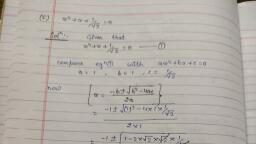 (5) x² + x + 1/√2 = 0
Sol^n:- Given that
x² + x + 1/√2 = 0 — (1)
compare eq^n (1) with ax² + bx + c = 0
a = 1, b = 1, c = 1/√2
now [x = -b ± √b² - 4ac / 2a]
= -1 ± √(1)² - 4×1×1/√2 / 2×1
= -1 ± √1 - 2×√2×√2×1/√2